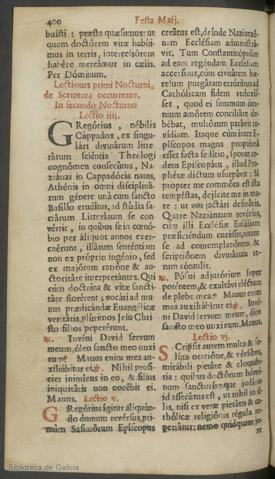 400
Festa Maij.
buisti : præsta quæsumus: ut
quem doctórem vitæ habúi-
mus in terris, intercessórem
habére mereámur in cælis.
Per Dóminum.
Lectiones primi Nocturni,
de Scriptura occurrente.
In secundo Nocturno
Lectio iiij.
GRegórius, nóbilis
Cáppadox, ex singu-
lári divinárum litte-
rárum sciéntia Theólogi
cognómen consecútus, Na-
ziánzi in Cappadócia natus,
Athénis in omni disciplinâ-
rum génere unà cum sancto
Basílio erudítus, ad stúdia sa-
crárum Litterárum se con-
vértit, in quibus se in cœnó-
bio per áliquot annos exer-
cuérunt, illárum senténtiam
non ex próprio ingénio, sed
ex majórum ratióne & au-
ctoritáte interpretántes. Qui
cum doctrína & vitæ sancti-
táte florérent, vocáti ad mu-
nus prædicándæ Evangélicæ
veritátis, plúrimos Jesu Chri-
sto fílios peperérunt.
℟. Invéni David servum
meum, óleo sancto meo unxi
eum: * Manus enim mea au-
xiliábitur ei. ℣. Nihil profí-
ciet inimícus in eo, & fílius
iniquitátis non nocébit ei.
Manus. Lectio v.
GRegórius ígitur aliquán-
do domum revérsus, pri-
mùm Sasimórum Epíscopus
creátus est, deínde Nazianzé-
nam Ecclésiam administrá-
vit. Tum Constantinópolim
ad eam regéndam Ecclésiam
accersítus, cùm civitátem hæ-
résum purgátam erróribus ad
Cathólicam fidem reduxís-
set, quod ei summum óm-
nium amórem conciliáre de-
bébat, multórum parávit in-
vídiam. Itaque cùm inter E-
píscopos magna proptérea
esset facta sedítio, sponte ce-
dens Episcopátu, illud Pro-
phétæ dictum usurpávit: Si
propter me commóta est ista
tempéstas, dejícite me in ma-
re: ut vos jactári desinátis.
Quare Naziánzum revérsus,
cùm illi Ecclésiæ Eulálium
præficiéndum curásset, totum
se ad contemplatiónem &
scriptiónem divinárum re-
rum cóntulit.
℟. Pósui adjutórium super
poténtem, & exaltávi eléctum
de plebe mea: * Manus enim
mea auxiliábitur ei. ℣. Invé-
ni David servum meum, óleo
sancto meo unxi eum. Manus.
Lectio vj.
SCripsit autem multa & so-
lúta oratióne, & vérsibus,
mirábili pietáte & eloquén-
tia: quibus doctórum hómi-
num sanctorúmque judício
id assecútus est, ut nihil in il-
lis, nisi ex veræ pietátis & ca-
thólicæ religiónis régula re-
periátur: nemo quidquam ju-
Biblioteca de Galicia